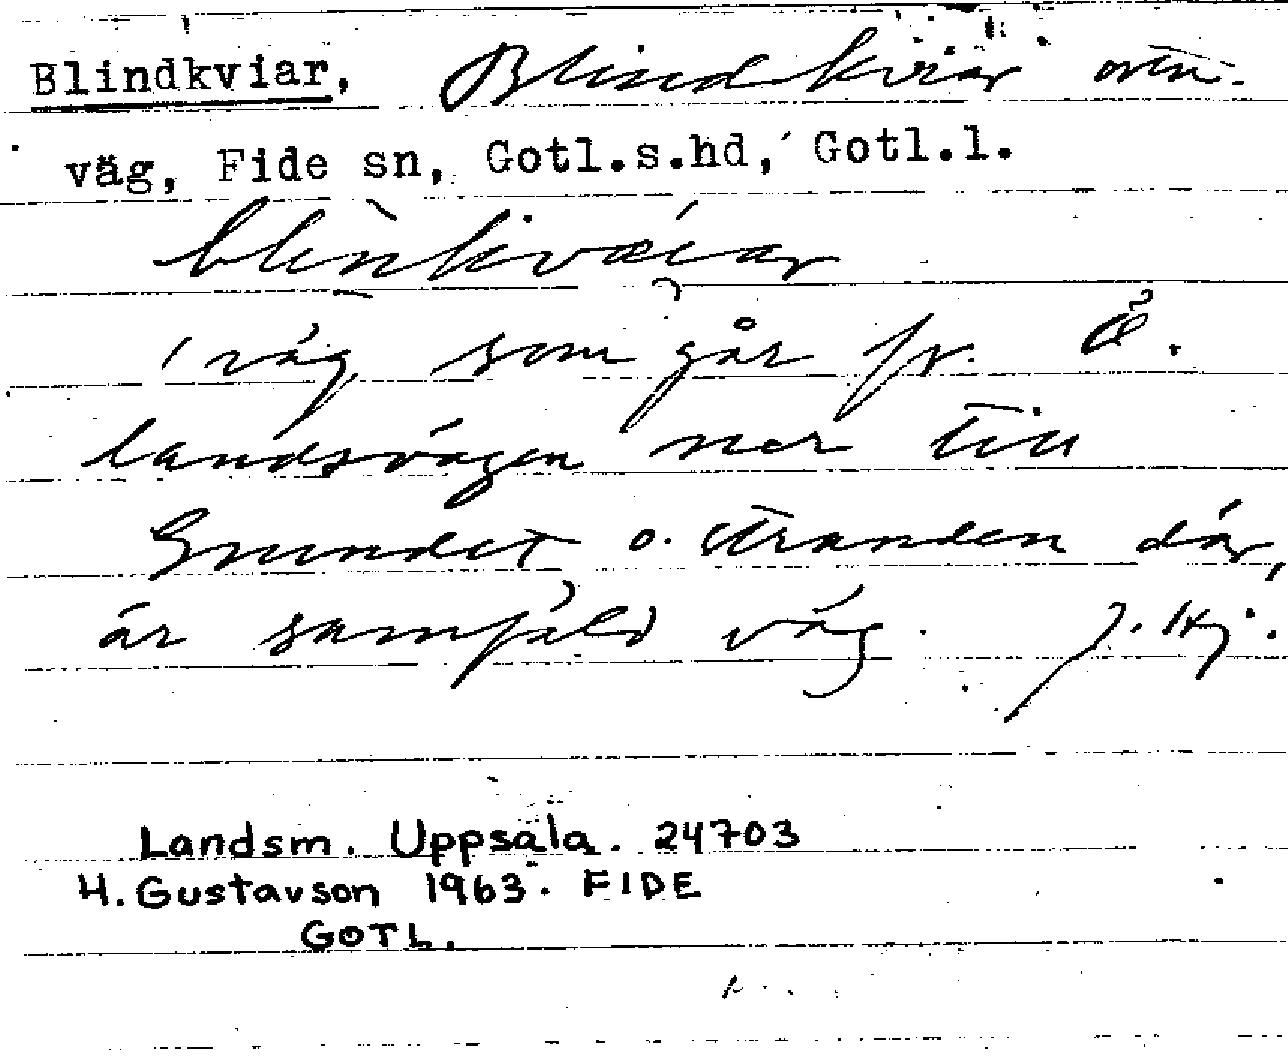 Blindkviar, Blindkviar
väg, Fide sn, Gotl.s.hd, Gotl.l.
väg som går fr. Ö.
landsvägen ner till
Grundet o. stranden där,
är samfäld väg. J. Hj.
Landsm. Uppsala. 24703
H. Gustavson 1963. FIDE
GOTL.